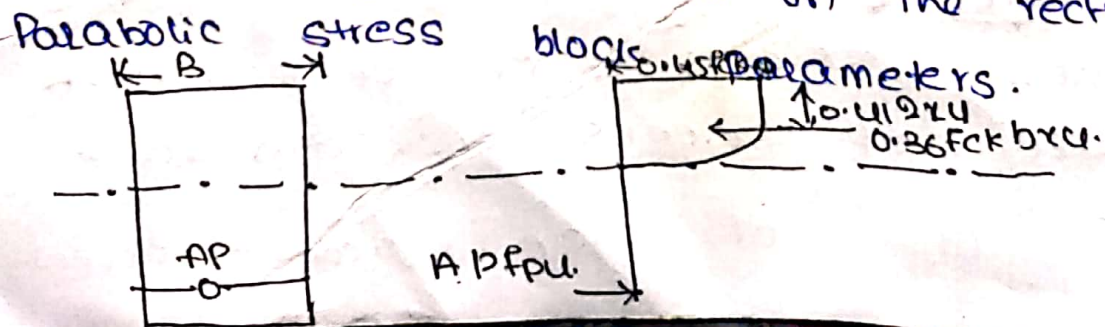 on the rect
Parabolic stress block parameters.
B
0.45f
0.42xu
0.36fck bxu.
AP
APfpu.